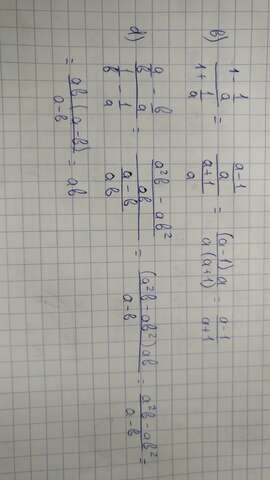 в) (1 - 1/a)/(1 + 1/a) = ((a-1)/a)/((a+1)/a) = (a-1)a/a(a+1) = (a-1)/(a+1)
d) (a/b - b/a)/(1/b - 1/a) = ((a²b - ab²)/ab)/((a-b)/ab) = (a²b-ab²)ab/(a-b) = (a²b-ab²)/(a-b) =
= ab(a-b)/(a-b) = ab